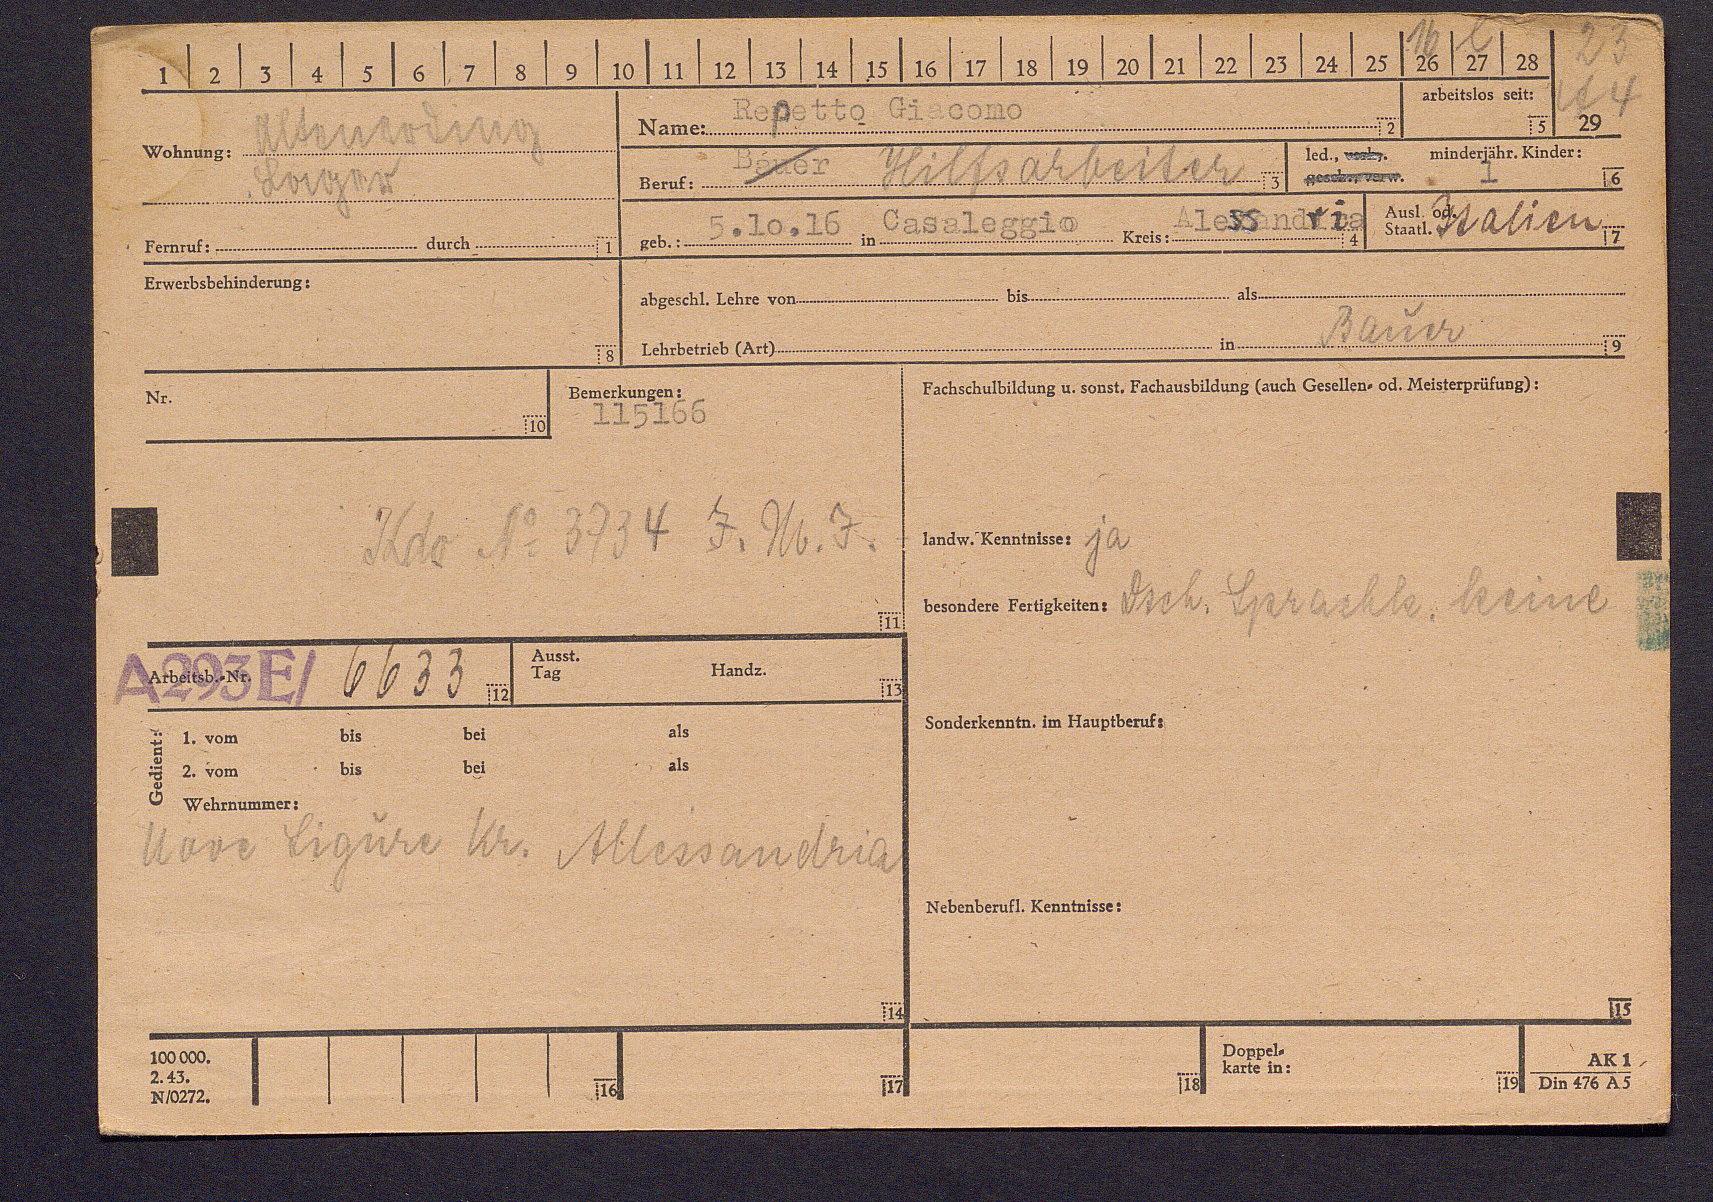 1 2 3 4 5 6 7 8 9 10 11 12 13 14 15 16 17 18 19 20 21 22 23 24 25 26 27 28
16
23
4
Wohnung: Altenerding
Lager
Fernruf: durch 1
Name: Repetto Giacomo 2
arbeitslos seit: 5 29
Beruf: Bauer Hilfsarbeiter 3
led., verh. minderjähr. Kinder:
gesch., verw. 1 6
geb.: 5.10.16 in Casaleggio Kreis: Alessandria 4
Ausl. od. Staatl. Italien 7
Erwerbsbehinderung: 8
abgeschl. Lehre von bis als
Lehrbetrieb (Art) in Bauer 9
Nr. 10
Bemerkungen:
115166
Kdo No 3734 11
Fachschulbildung u. sonst. Fachausbildung (auch Gesellen- od. Meisterprüfung):
landw. Kenntnisse: ja
besondere Fertigkeiten: Dsch. Sprachk. keine
Sonderkenntn. im Hauptberuf:
Nebenberufl. Kenntnisse:
15
A293E/
Arbeitsb.-Nr. 6633 12
Ausst. Tag Handz. 13
Gedient:
1. vom bis bei als
2. vom bis bei als
Wehrnummer:
Nove Ligure Kr. Allessandria
14
100 000.
2. 43.
N/0272.
16 17 18
Doppel-
karte in: 19
AK 1
Din 476 A 5